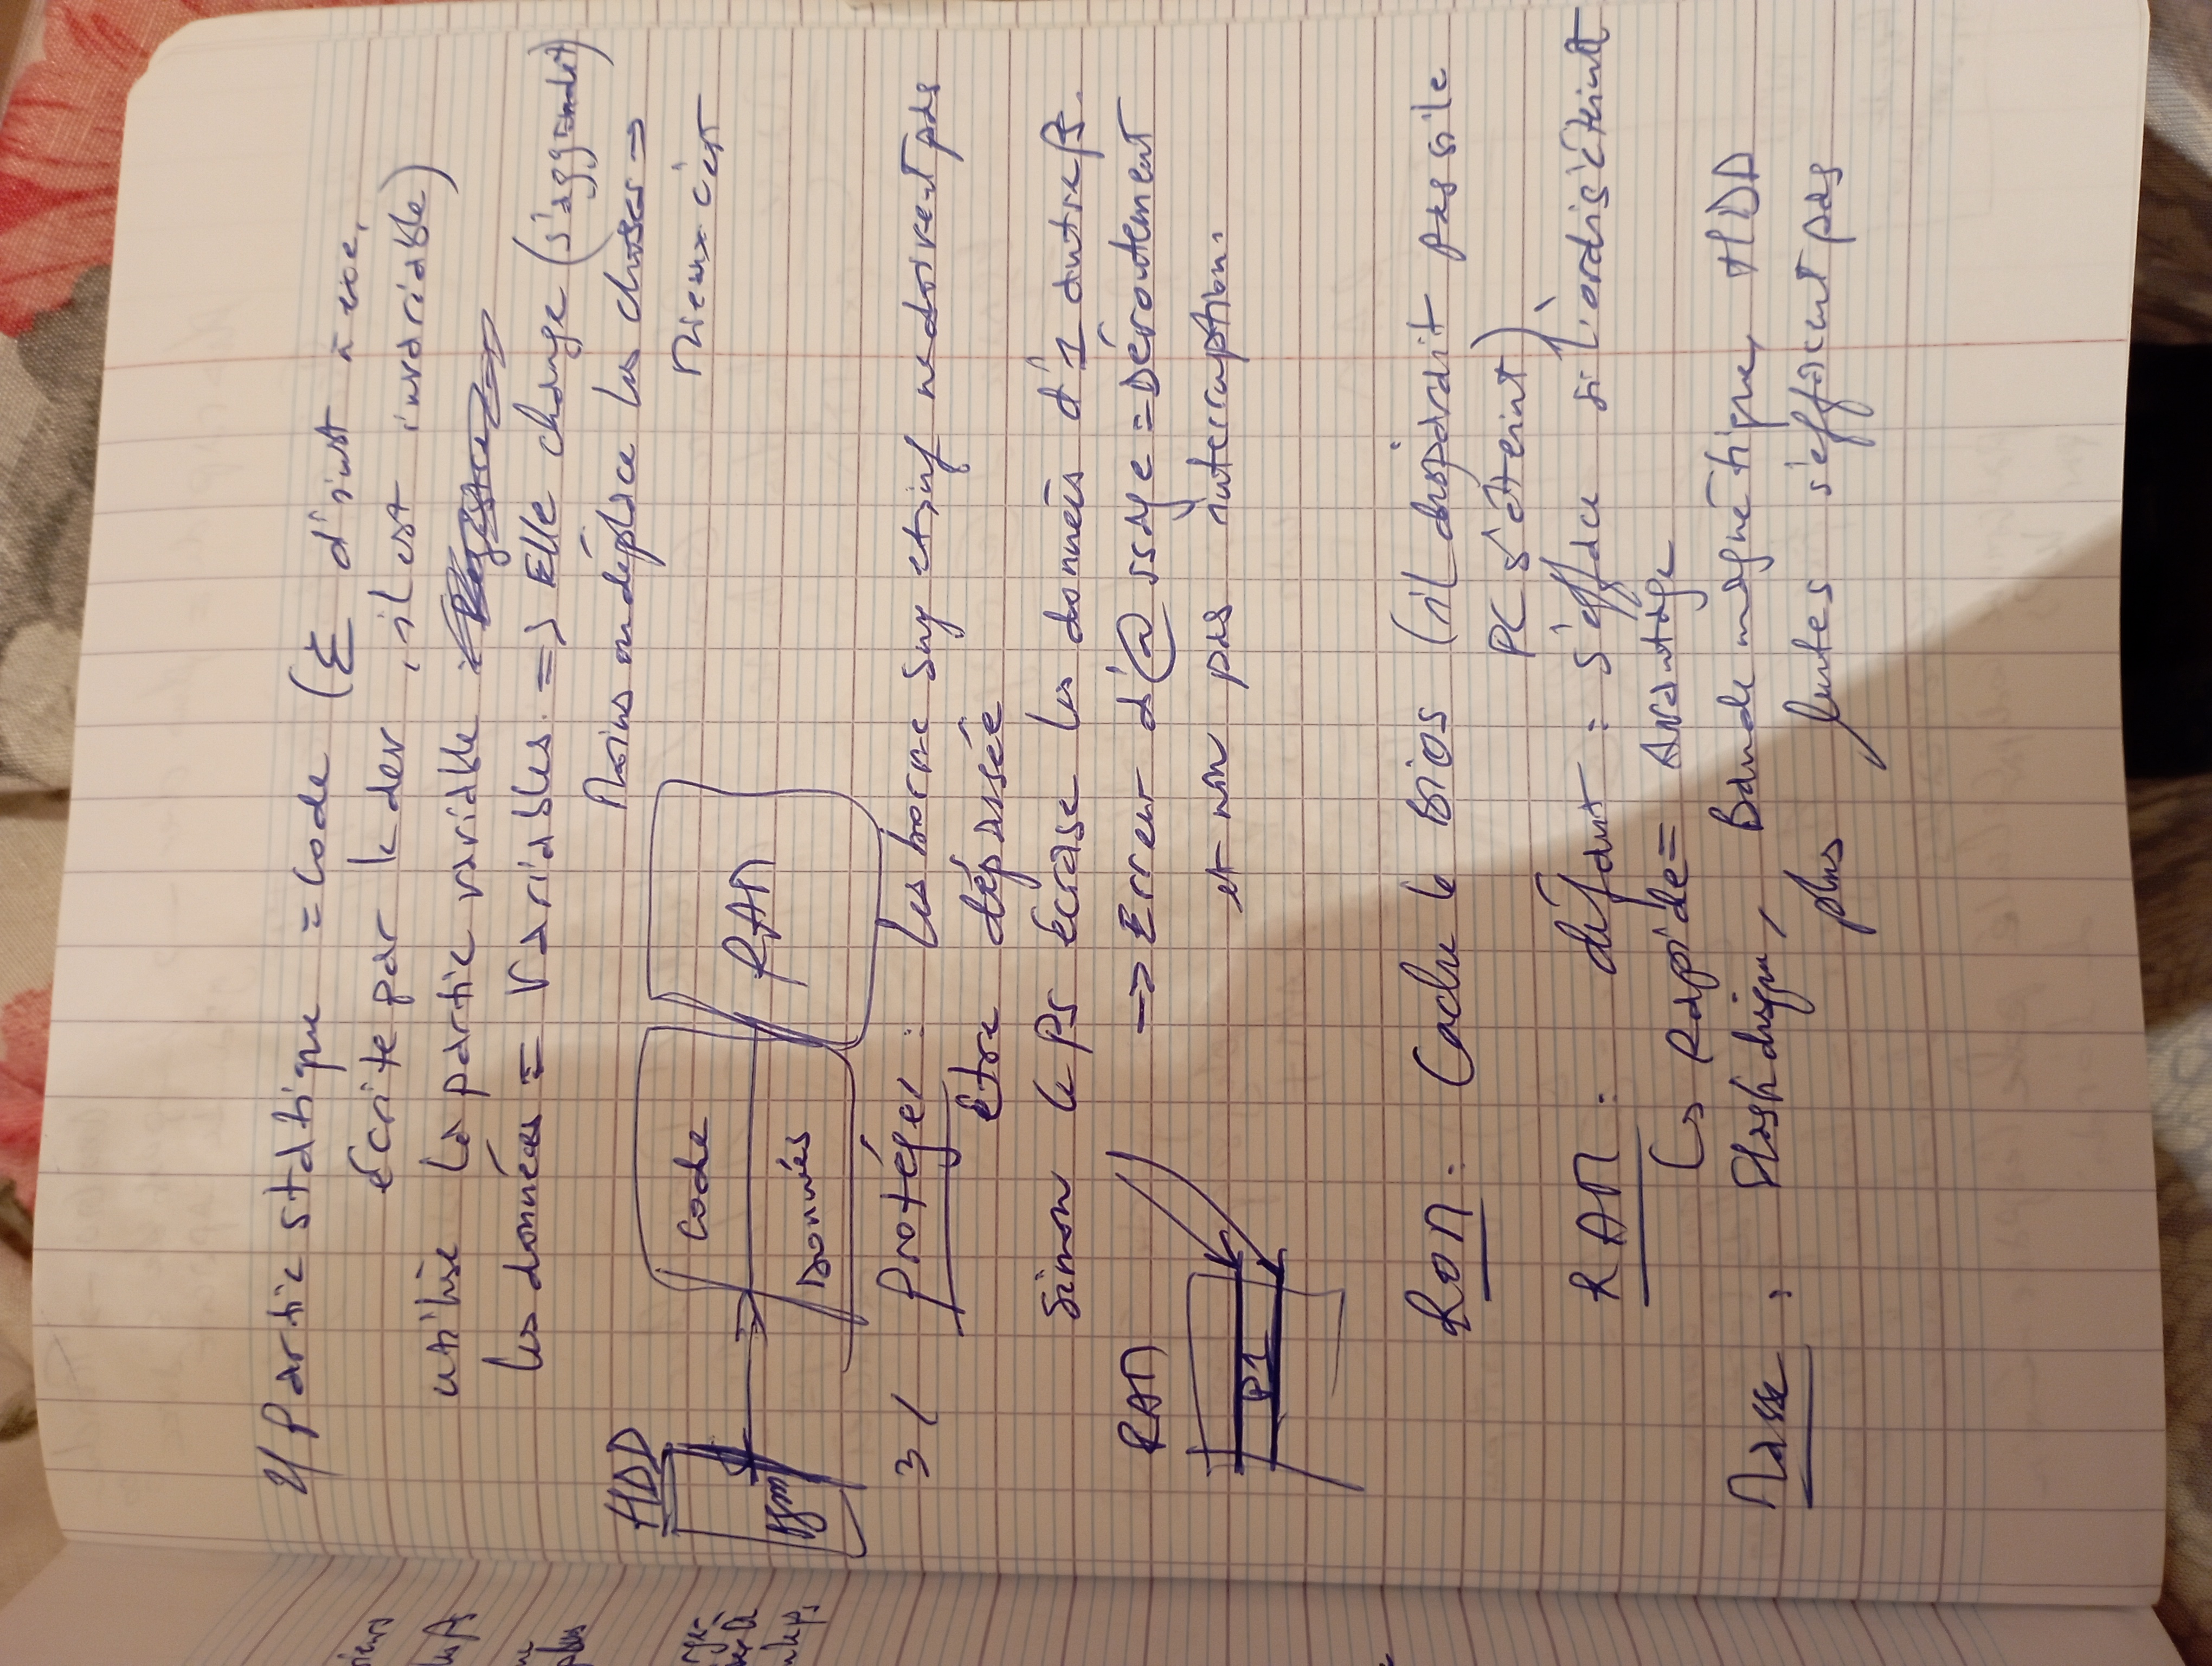 2/ Partie statique = code (E d'inst à exe,
écrite par le der, il est invariable)
utilise la partie variable
les données = Variables. => Elle change (s'aggrandit)
Moins on déplace les choses =>
mieux c'est
HDD
Pgm
Code
Données
RAM
3/ Protéger : les borne Sup et inf ne doivent pas
être dépassée
Sinon le Ps écrase les données d'1 autre Ps.
RAM => Erreur d'@ssage = Déroutement
et non pas interruption.
P1
ROM : Cache le bios (il disparait pas si le
PC s'éteint)
RAM : défaut : s'efface si l'ordi s'éteint
↳ Rapide = Avantage
Masse : Flash disque, Bande magnétique, HDD
plus lentes s'effacent pas